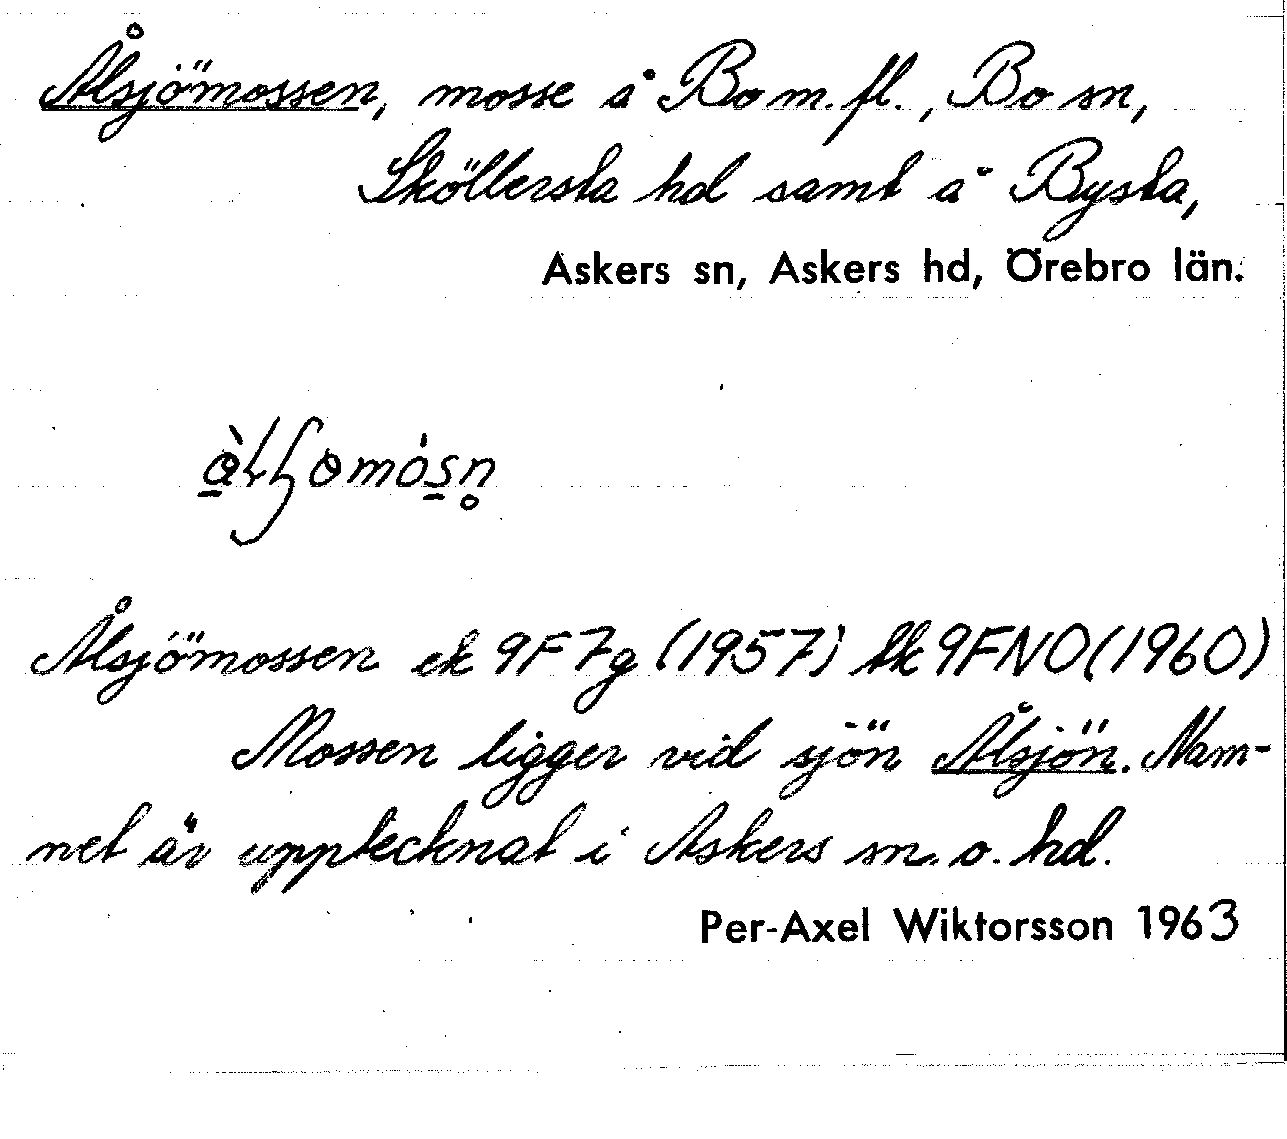 Ålsjömossen, mosse å Bo m.fl., Bo sn,
Sköllersta hd samt å Bysta,
Askers sn, Askers hd, Örebro län.
Ålsjömossen ek 9F7g (1957) tk 9FNO (1960)
Mossen ligger vid sjön Ålsjön. Nam-
net är upptecknat i Askers sn. o. hd.
Per-Axel Wiktorsson 1963